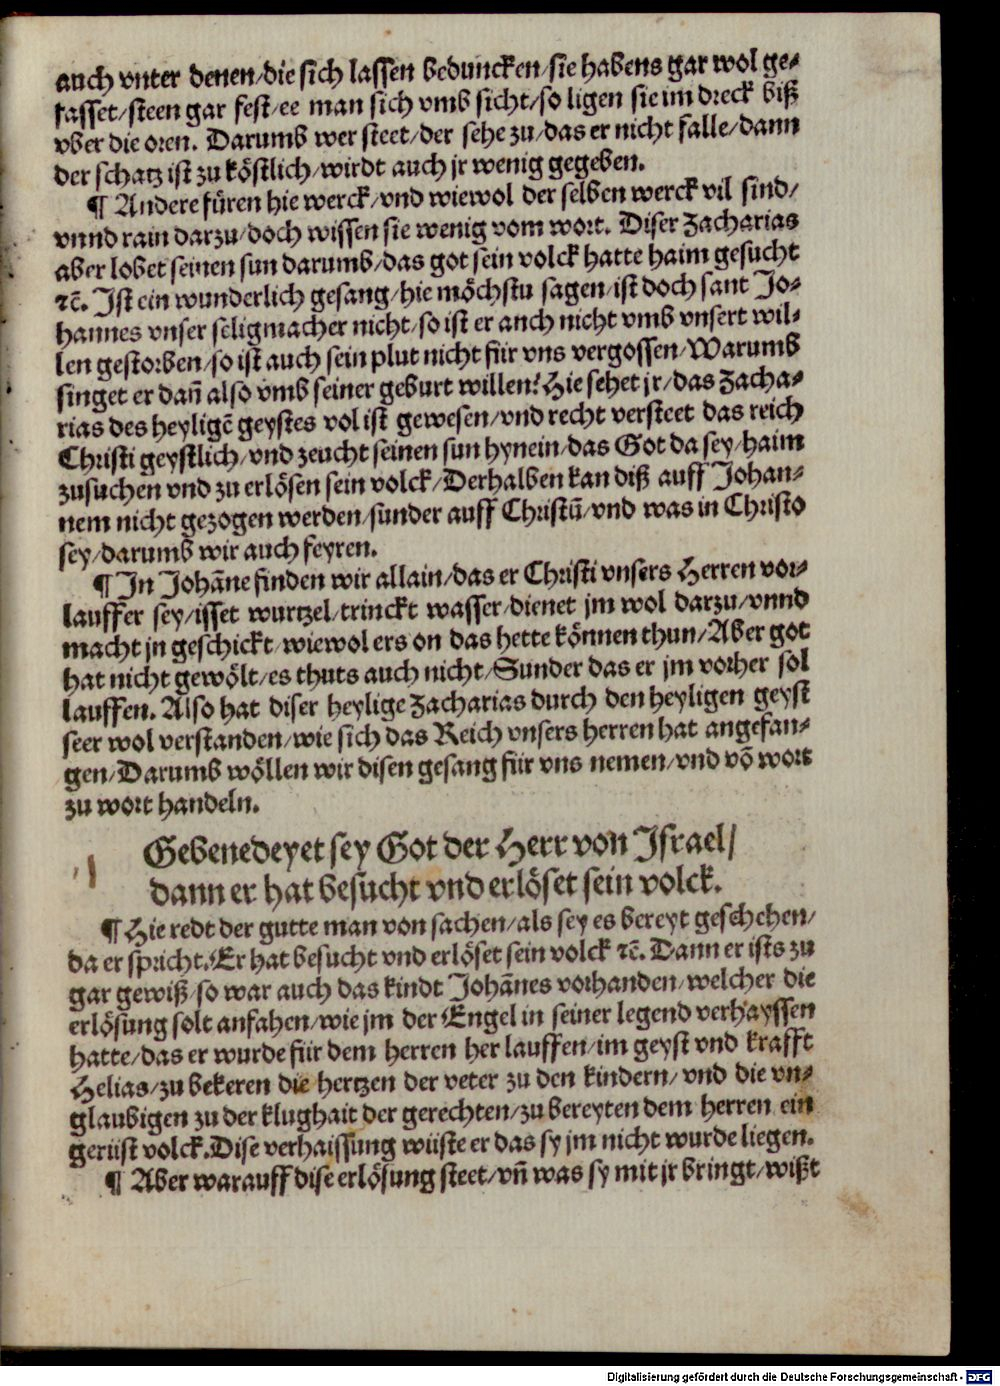 auch vnter denen/die sich lassen beduncken/sie habens gar wol ge⸗
fasset/steen gar fest/ee man sich vmb sicht/so ligen sie im dreck biß
vber die oren. Darumb wer steet/der sehe zu/das er nicht falle/dann
der schatz ist zu köstlich/wirdt auch jr wenig gegeben.
¶ Andere füren hie werck/vnd wiewol der selben werck vil sind/
vnnd rain darzu/doch wissen sie wenig vom wort. Diser Zacharias
aber lobet seinen sun darumb/das got sein volck hatte haim gesucht
ꝛc̃. Ist ein wunderlich gesang/hie möchstu sagen/ist doch sant Jo⸗
hannes vnser seligmacher nicht/so ist er anch nicht vmb vnsert wil⸗
len gestorben/so ist auch sein plut nicht für vns vergossen/Warumb
singet er dañ also vmb seiner geburt willen? Hie sehet jr/das Zacha⸗
rias des heyligẽ geystes vol ist gewesen/vnd recht versteet das reich
Christi geystlich/vnd zeucht seinen sun hynein/das Got da sey/haim
zusuchen vnd zu erlösen sein volck/Derhalben kan diß auff Johan⸗
nem nicht gezogen werden/sunder auff Christũ/vnd was in Christo
sey/darumb wir auch feyren.
¶ In Johãne finden wir allain/das er Christi vnsers Herren vor⸗
lauffer sey/isset wurtzel/trinckt wasser/dienet jm wol darzu/vnnd
macht jn geschickt/wiewol ers on das hette können thun/Aber got
hat nicht gewölt/es thuts auch nicht/Sunder das er jm vorher sol
lauffen. Also hat diser heylige Zacharias durch den heyligen geyst
seer wol verstanden/wie sich das Reich vnsers herren hat angefan⸗
gen/Darumb wöllen wir disen gesang für vns nemen/vnd võ wort
zu wort handeln.
Gebenedeyet sey Got der Herr von Israel/
dann er hat besucht vnd erlöset sein volck.
¶ Hie redt der gutte man von sachen/als sey es bereyt geschehen/
da er spricht. Er hat besucht vnd erlöset sein volck ꝛc̃. Dann er ists zu
gar gewiß/so war auch das kindt Johãnes vorhanden/welcher die
erlösung solt anfahen/wie jm der Engel in seiner legend verhayssen
hatte/das er wurde für dem herren her lauffen/im geyst vnd krafft
Helias/zu bekeren die hertzen der veter zu den kindern/vnd die vn⸗
glaubigen zu der klughait der gerechten/zu bereyten dem herren ein
gerüst volck. Dise verhaissung wüste er das sy jm nicht wurde liegen.
¶ Aber warauff dise erlösung steet/vñ was sy mit jr bringt/wißt
Digitalisierung gefördert durch die Deutsche Forschungsgemeinschaft - DFG